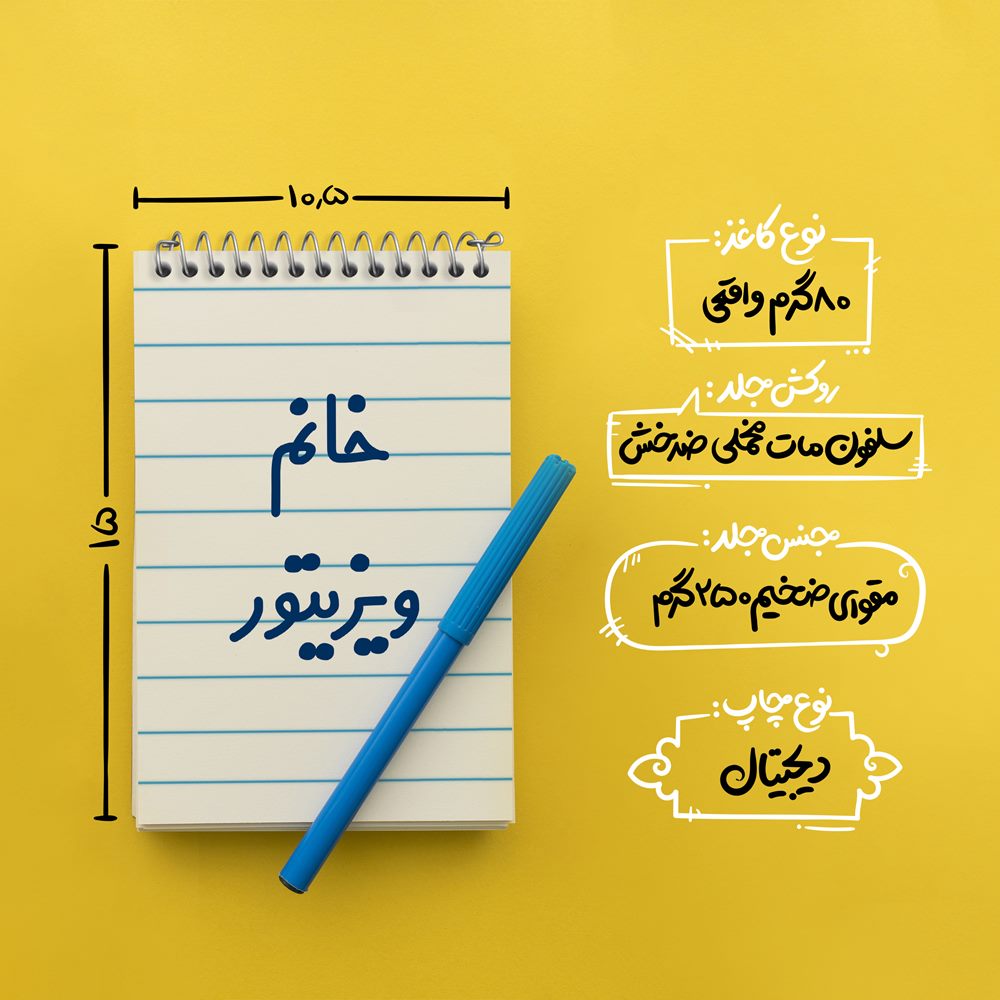 ۱۰٫۵
۱۵
خانم
ویزیتور
نوع کاغذ:
۸۰گرم واقعی
روکش جلد:
سلفون مات مخملی ضدخش
جنس جلد:
مقوای ضخیم ۲۵۰گرم
نوع چاپ:
دیجیتال